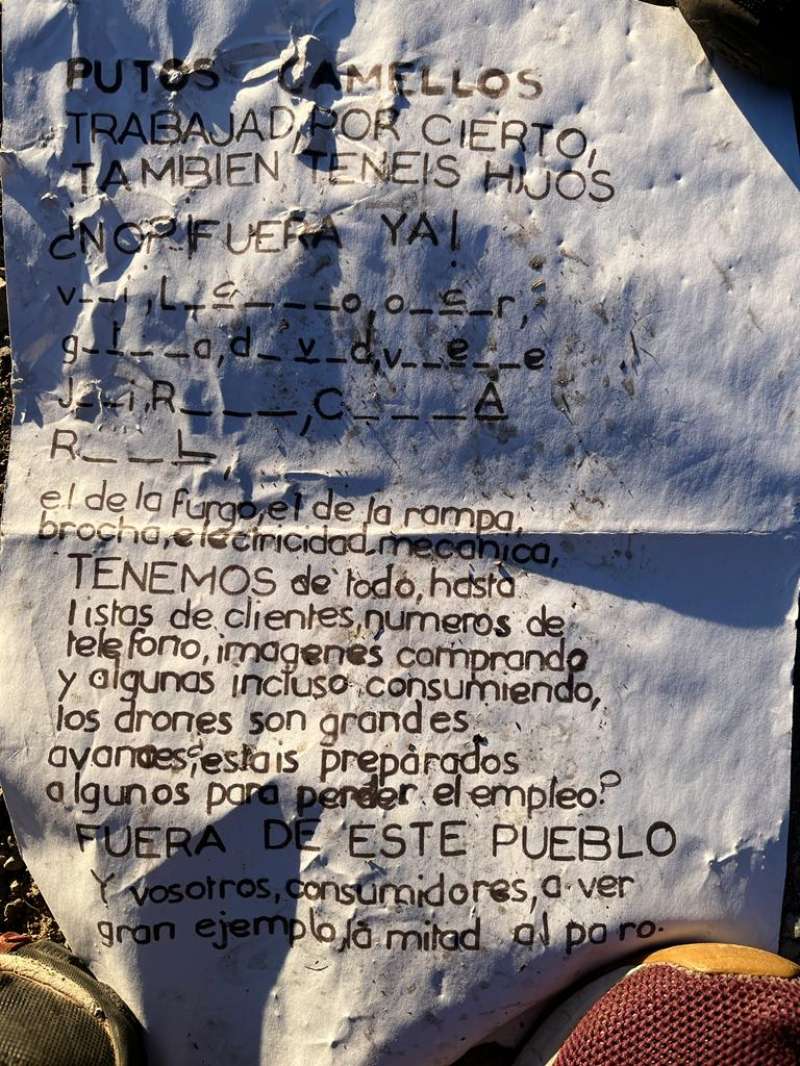 PUTOS CAMELLOS
TRABAJAD, POR CIERTO,
TAMBIEN TENEIS HIJOS
¿NO? ¡FUERA YA!
v__i, L_c____o, o_c_r,
g_t___a, d_v_d, v__e__e
J__i, R____, C____A
R___L,
el de la furgo, el de la rampa,
brocha, electricidad, mecanica,
TENEMOS de todo, hasta
listas de clientes, numeros de
telefono, imagenes comprando
y algunas incluso consumiendo,
los drones son grandes
avances, ¿estais preparados
algunos para perder el empleo?
FUERA DE ESTE PUEBLO
Y vosotros, consumidores, a ver
gran ejemplo, la mitad al paro.